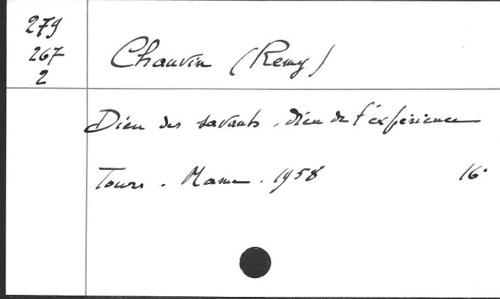 279
267
2
Chauvin (Remy)
Dieu des savants, dieu de l'expérience
Tours. Mame. 1958 16°